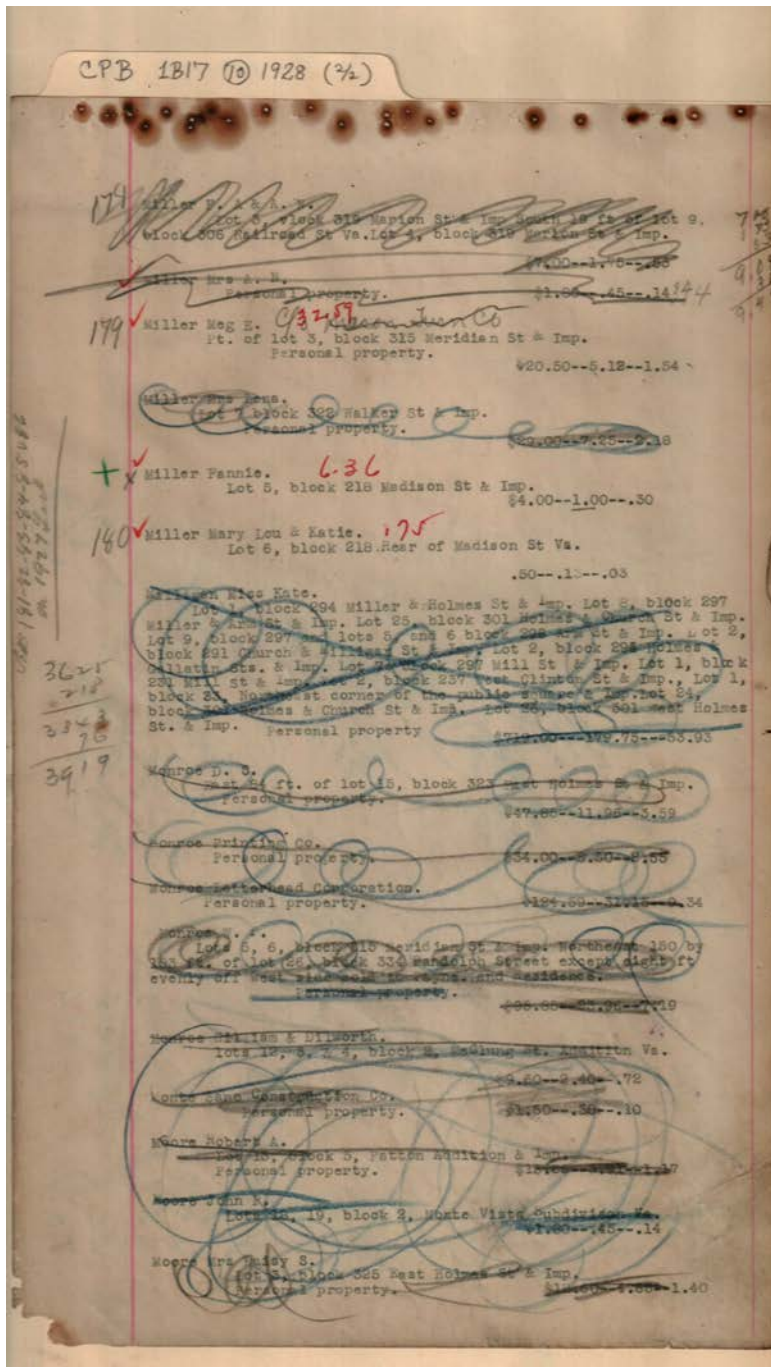 CPB 1B17 (10) 1928 (2/2)
174 Miller P. A & A. M.
Lot 3, block 319 Marion St & Imp South 19 ft of lot 9,
block 306 Railroad St Va.Lot 4, block 319 Marion St & Imp.
$7.00--1.75--.53
Miller Mrs A. M.
Personal property.
$1.80--.45--.14
179 Miller Meg E. C/o Co
32.59
Pt. of lot 3, block 315 Meridian St & Imp.
Personal property.
$20.50--5.12--1.54
Miller Mrs Lena.
Lot 7 block 322 Walker St & Imp.
Personal property.
$29.00--7.25--2.18
+ x Miller Fannie. 6.36
Lot 5, block 218 Madison St & Imp.
$4.00--1.00--.30
180 Miller Mary Lou & Katie. .75
Lot 6, block 218.Rear of Madison St Va.
.50--.13--.03
Milligan Miss Kate.
Lot 1, block 294 Miller & Holmes St & Imp. Lot 8, block 297
Miller & Arms St & Imp. Lot 25, block 301 Holmes & Church St & Imp.
Lot 9, block 297 and lots 5, and 6 block 298 Arm St & Imp. Lot 2,
block 291 Church & Milligan St & Imp. Lot 2, block 295 Holmes
Gallatin Sts. & Imp. Lot 7, block 297 Mill St & Imp. Lot 1, block
231 Mill St & Imp. Lot 2, block 237 West Clinton St & Imp., Lot 1,
block 33, Northeast corner of the public square & Imp.Lot 24,
block 301 Holmes & Church St & Imp. Lot 26, block 301 West Holmes
St. & Imp. Personal property
$719.00--179.75--53.93
3625
218
3343
76
3919
Monroe D. S.
East 64 ft. of lot 15, block 323 East Holmes St & Imp.
Personal property.
$47.85--11.96--3.59
Monroe Printing Co.
Personal property.
$34.00--8.50--2.55
Monroe Letterhead Corporation.
Personal property.
$124.59--31.15--9.34
Monroe W. F.
Lots 5, 6, block 215 Meridian St & Imp. Northeast 150 by
183 ft. of lot 26, block 334 Randolph Street except eight ft
evenly off West side sold to and Residence.
Personal property.
$95.85--23.96--7.19
Monroe William & Dilworth.
lots 12, 3, & 4, block 2, McClung St. Addition Va.
$9.60--2.40--.72
Monte Sano Construction Co.
Personal property.
$1.50--.38--.10
Moore Robert A.
Lot 15, block 5, Patton Addition & Imp.
Personal property.
Moore John R.
Lots 18, 19, block 2, Monte Vista Subdivison Va.
$1.80--.45--.14
Moore Mrs Daisy S.
Lot 3, block 325 East Holmes St & Imp.
Personal property.
1.40